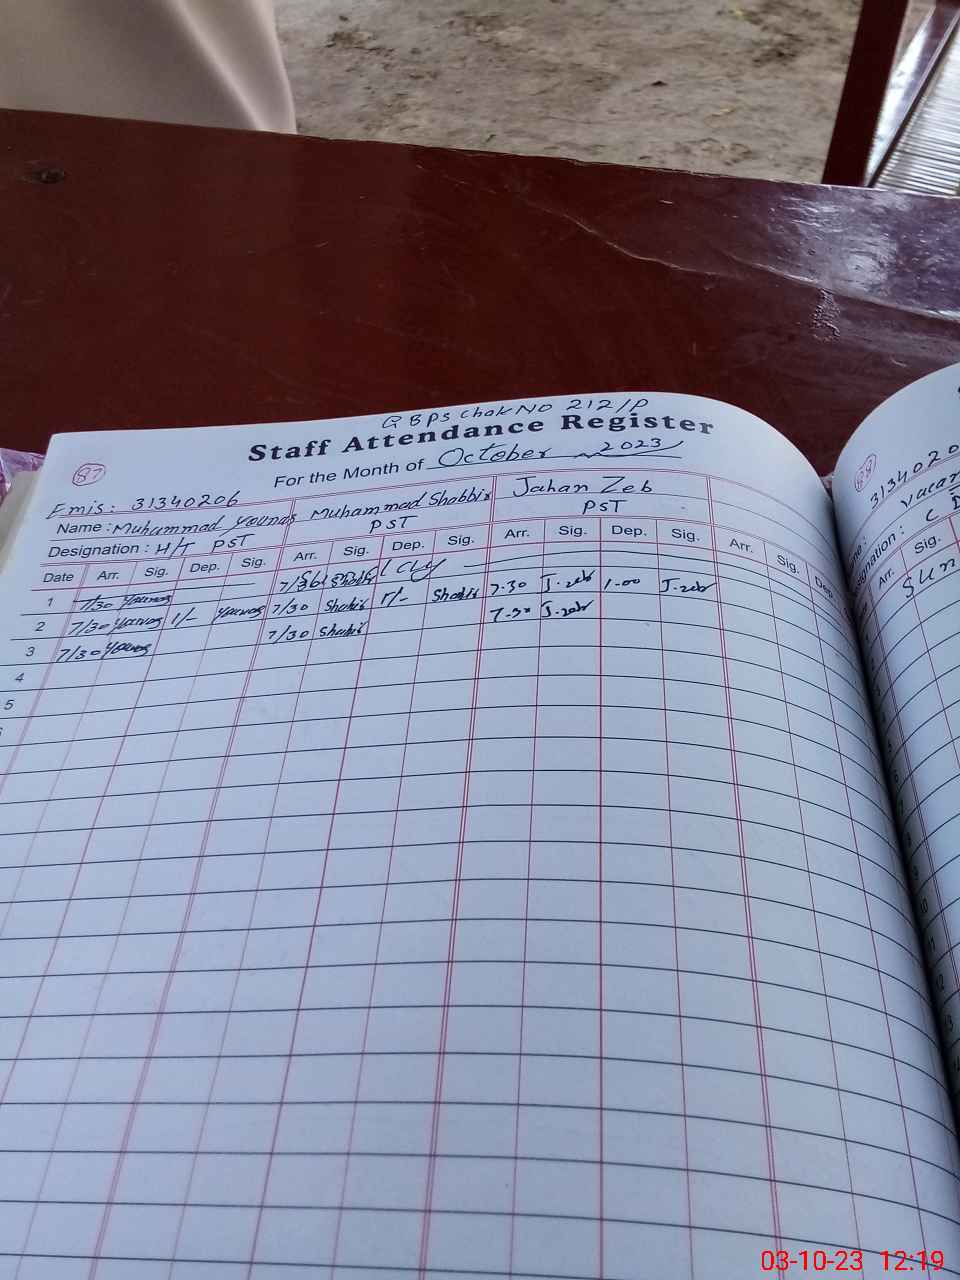 GBPS Chak No 212/P
Staff Attendance Register
87
For the Month of October 2023
Emis: 31340206
Name : Muhammad Younas Muhammad Shabbir Jahan Zeb
Designation : H/T PST PST PST
Date Arr. Sig. Dep. Sig. Arr. Sig. Dep. Sig. Arr. Sig. Dep. Sig. Arr. Sig. Dep.
1 7/30 Younas 7/30
2 7/30 Younas 1/- Younas 7/30 Shabir 1/- Shabir 7-30 J-zeb 1-00 J-zeb
3 7/30 Younas 7/30 Shabir 7-30 J-zeb
4
5
88
3134020
vacan
signation :
Arr. Sig.
Sun
03-10-23 12:19